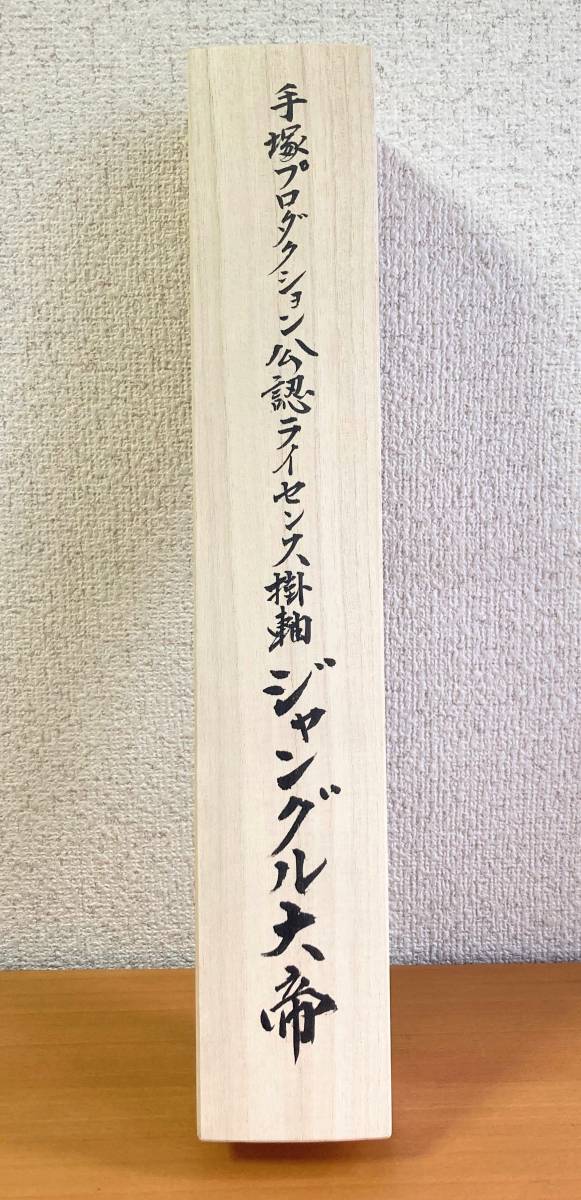 手塚プロダクション公認ライセンス掛軸ジャングル大帝